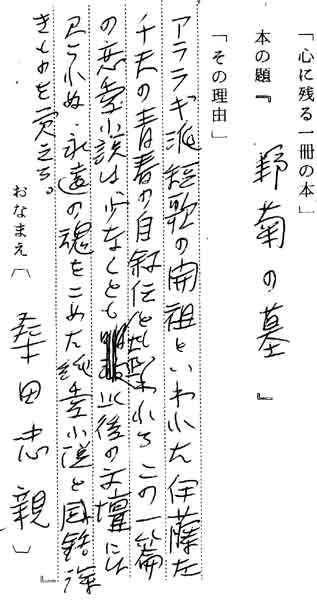 「心に残る一冊の本」
本の題『 野菊の墓 』
「その理由」
アララギ派短歌の開祖といわれた伊藤左
千夫の青春の自叙伝とも われるこの一篇
の恋愛小説は、少なくとも 以後の文壇には
永遠の魂をこめた純愛小説と感銘深
きものを覚える。
おなまえ〔 桑田忠親 〕
』